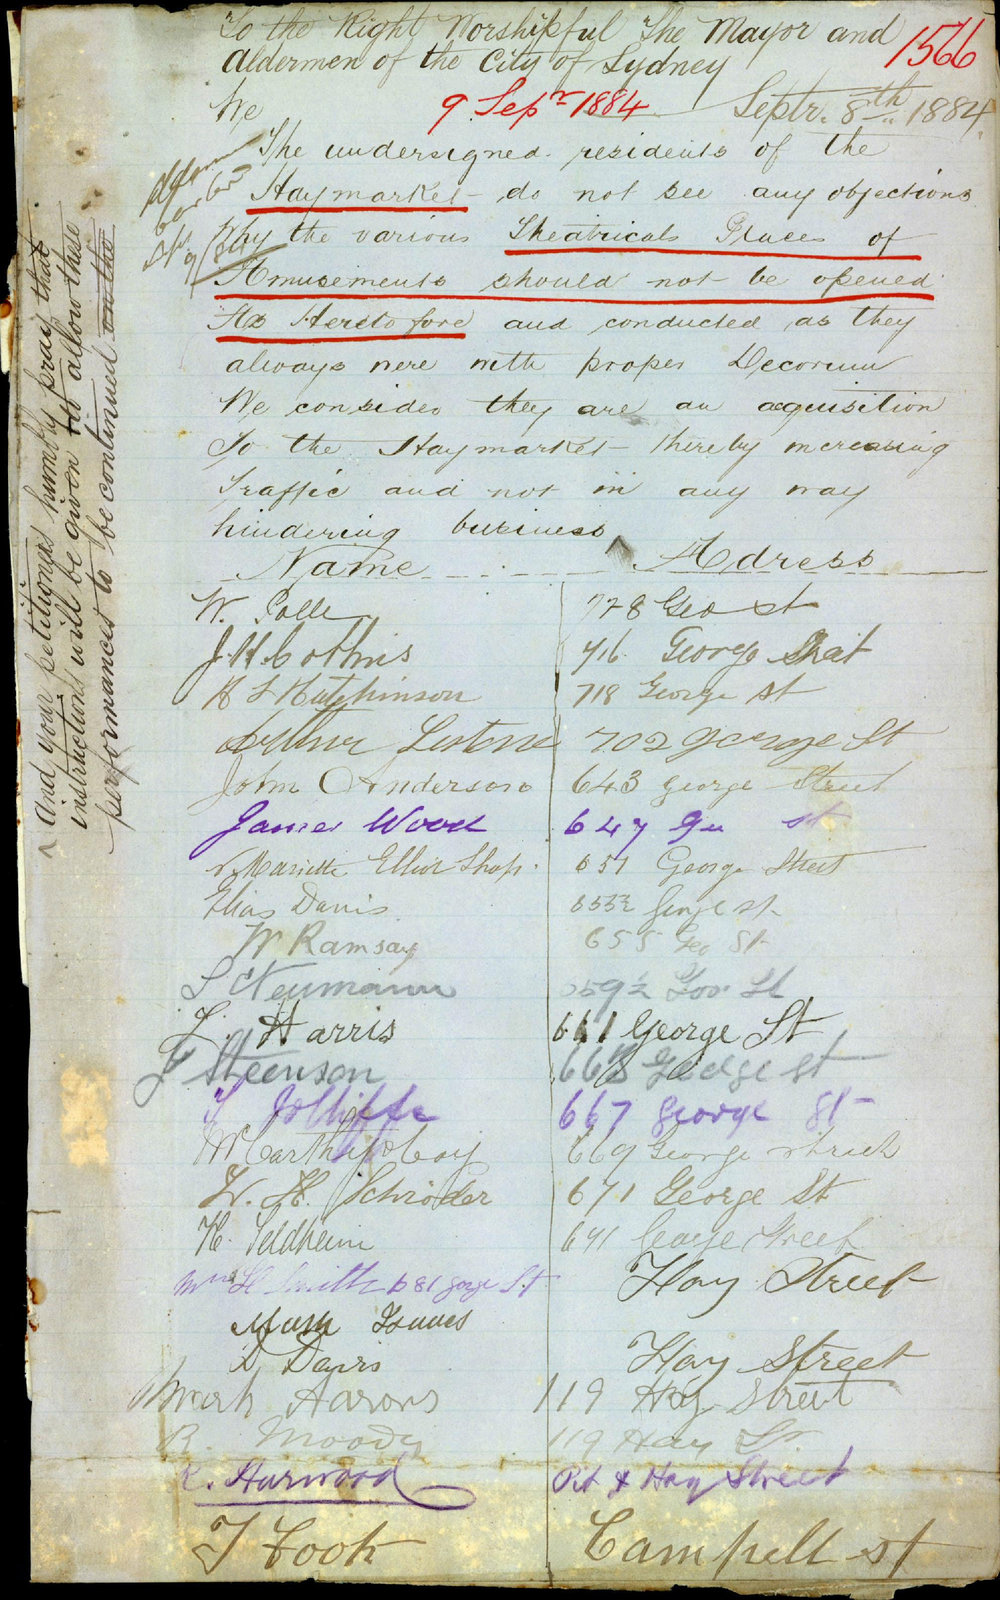 To the Right Worshipful The Mayor and
Aldermen of the City of Sydney
1566
We 9 Sepr 1884 Septr. 8th 1884
The undersigned residents of the
Haymarket do not see any objections
Why the various Theatricals Places of
Amusements should not be opened
As Heretofore and conducted as they
always were with proper Decorum
We consider they are an aquisition
To the Haymarket thereby increasing
Traffic and not in any way
hindering business
And your petitioners humbly pray that
instructions will be given to allow these
performances to be continued
Name Adress
W. 778 Geo st
J. H. Collins 716 George
H J Hutchinson 718 George St
Arthur 702 George St
John Anderson 643 George Street
James Wood 647 st
Elliot Shop. 651 George Street
Elias Davis 653½ George st
W Ramsay 655 Geo St
S Neumann 659½ St
Harris 661 George St
J Steenson George St
T Jolliffe 667 George St
669 George street
W. H. Schroder 671 George St
H. Feldheim George Street
Mrs H Smith 681 George St Hay Street
Mark Isaacs
D Davis Hay Street
Aarons 119 Hay Street
R. Moody 119 Hay St
R. Harwood Pit & Hay Street
T Cook Campbell st